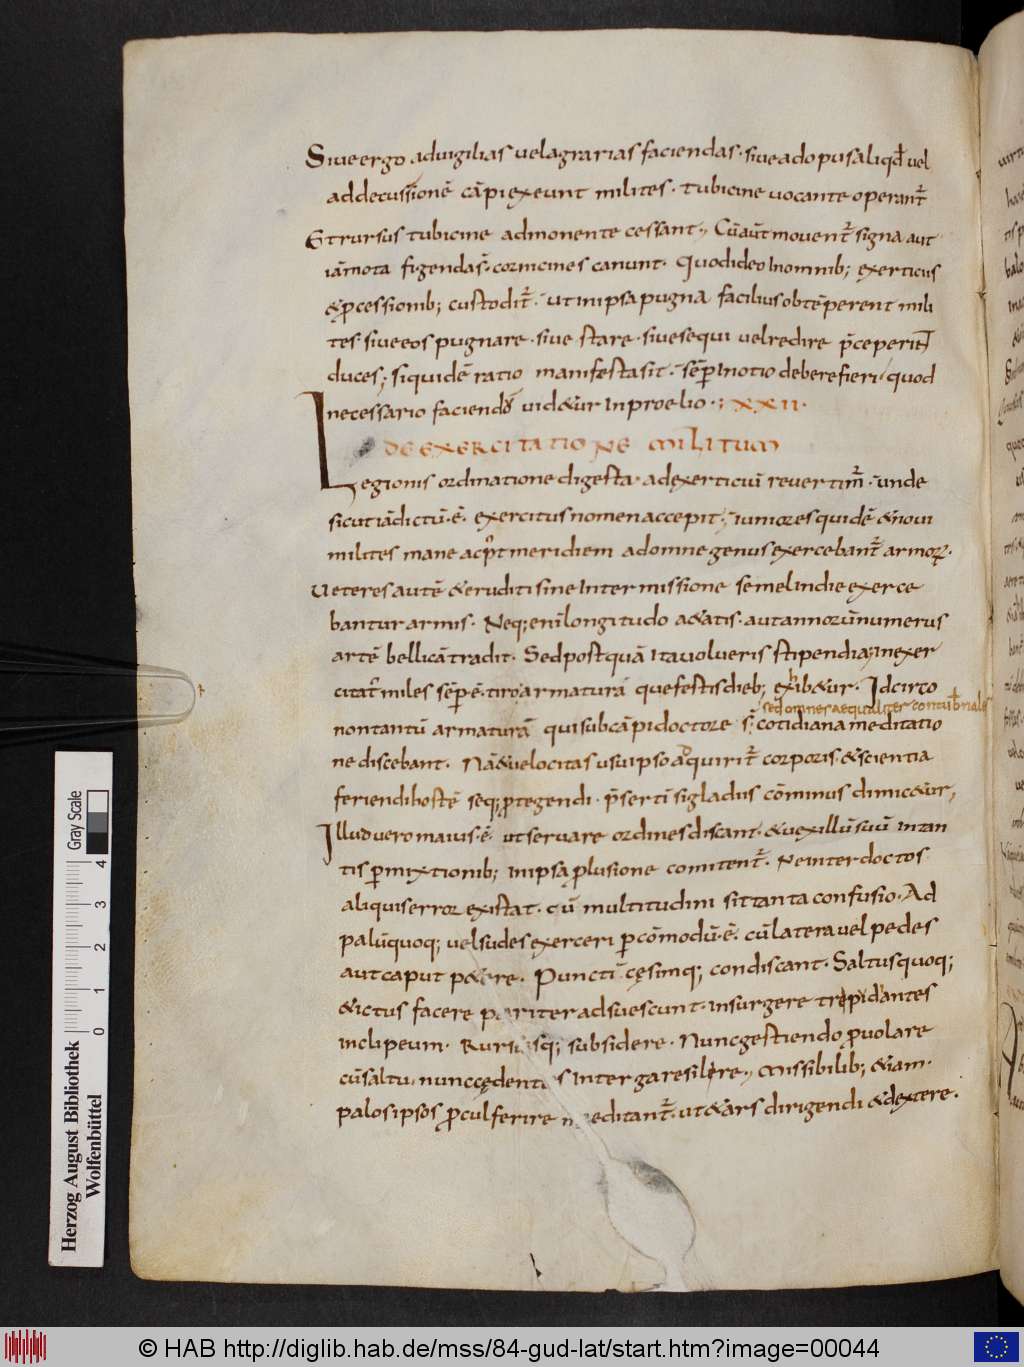 Siue ergo aduigilias uel agrarias faciendas · siue ad opus aliqđ uel
ad decussionē cāpi exeunt milites · tubicine uocante operant̄
Et rursus tubicine admonente cessant · Cū aūt mouent̄ signa aut
iā mota figendas · cornicines canunt · Quod ideo in omnib; exerticus
& p̄cessionib; custodit̄ · ut in ipsa pugna facilius obtēperent mili
tes · siue eos pugnare · siue stare · siue sequi uel redire p̄ceperin̄t
duces; siquidē ratio manifesta sit · sēp in otio debere fieri · quod
necessario faciendū uid&ur in proelio · ; XXII ·
DE EXERCITATIONE MILITUM
Legionis ordinatione digesta · ad exerticuī reuertim̄ · unde
sicut iā dictū · ē · exercitus nomen accepit · iuniores quidē & noui
milites mane ac p̄t meridiem ad omne genus exercebant̄ armoꝝ ·
Ueteres autē & eruditi sine intermissione semel in die exerce
bantur armis · Neq; enī longitudo a&atis · aut annorū numerus
artē bellicā tradit · Sed post quā ita uolueris stipendia; inexer
citat̄ miles sēp · ē · tiro armaturā que festis dieb; exib&ur · Idcirco
sed omnes aequaliter contub̄nales
non tantū armaturā qui sub cāpidoctore s̄ · cotidiana meditatio
ne discebant · Nā & uelocitas usu ipso adquirit̄ corporis · & scientia
feriendi hostē seq; p̄tegendi · p̄sertī si gladiis cōminus dimic&ur,
Illud uero maius · ē · ut seruare ordines discant · & uexillū suū in tan
tis p̄mixtionib; in ipsa p̄lusione comitent̄ · Ne inter doctos
aliquis error existat · cū multitudini sit tanta confusio · Ad
palū quoq; uel sudes exerceri p̄cōmodū · ē · cū latera uel pedes
aut caput p&ere · Punctī cęsimq; condiscant · Saltus quoq;
& ictus facere pariter adsuescunt · insurgere trepidantes
in clipeum · Rursusq; subsidere · Nunc gestiendo p̄uolare
cū saltu · nunc cędentes in terga resilire, Missibilib; &iam ·
palos ipsos p̄cul ferire meditant̄ · ut & ars dirigendi & dextere ·
Herzog August Bibliothek
Wolfenbüttel
0 1 2 3 4
Gray Scale
© HAB http://diglib.hab.de/mss/84-gud-lat/start.htm?image=00044